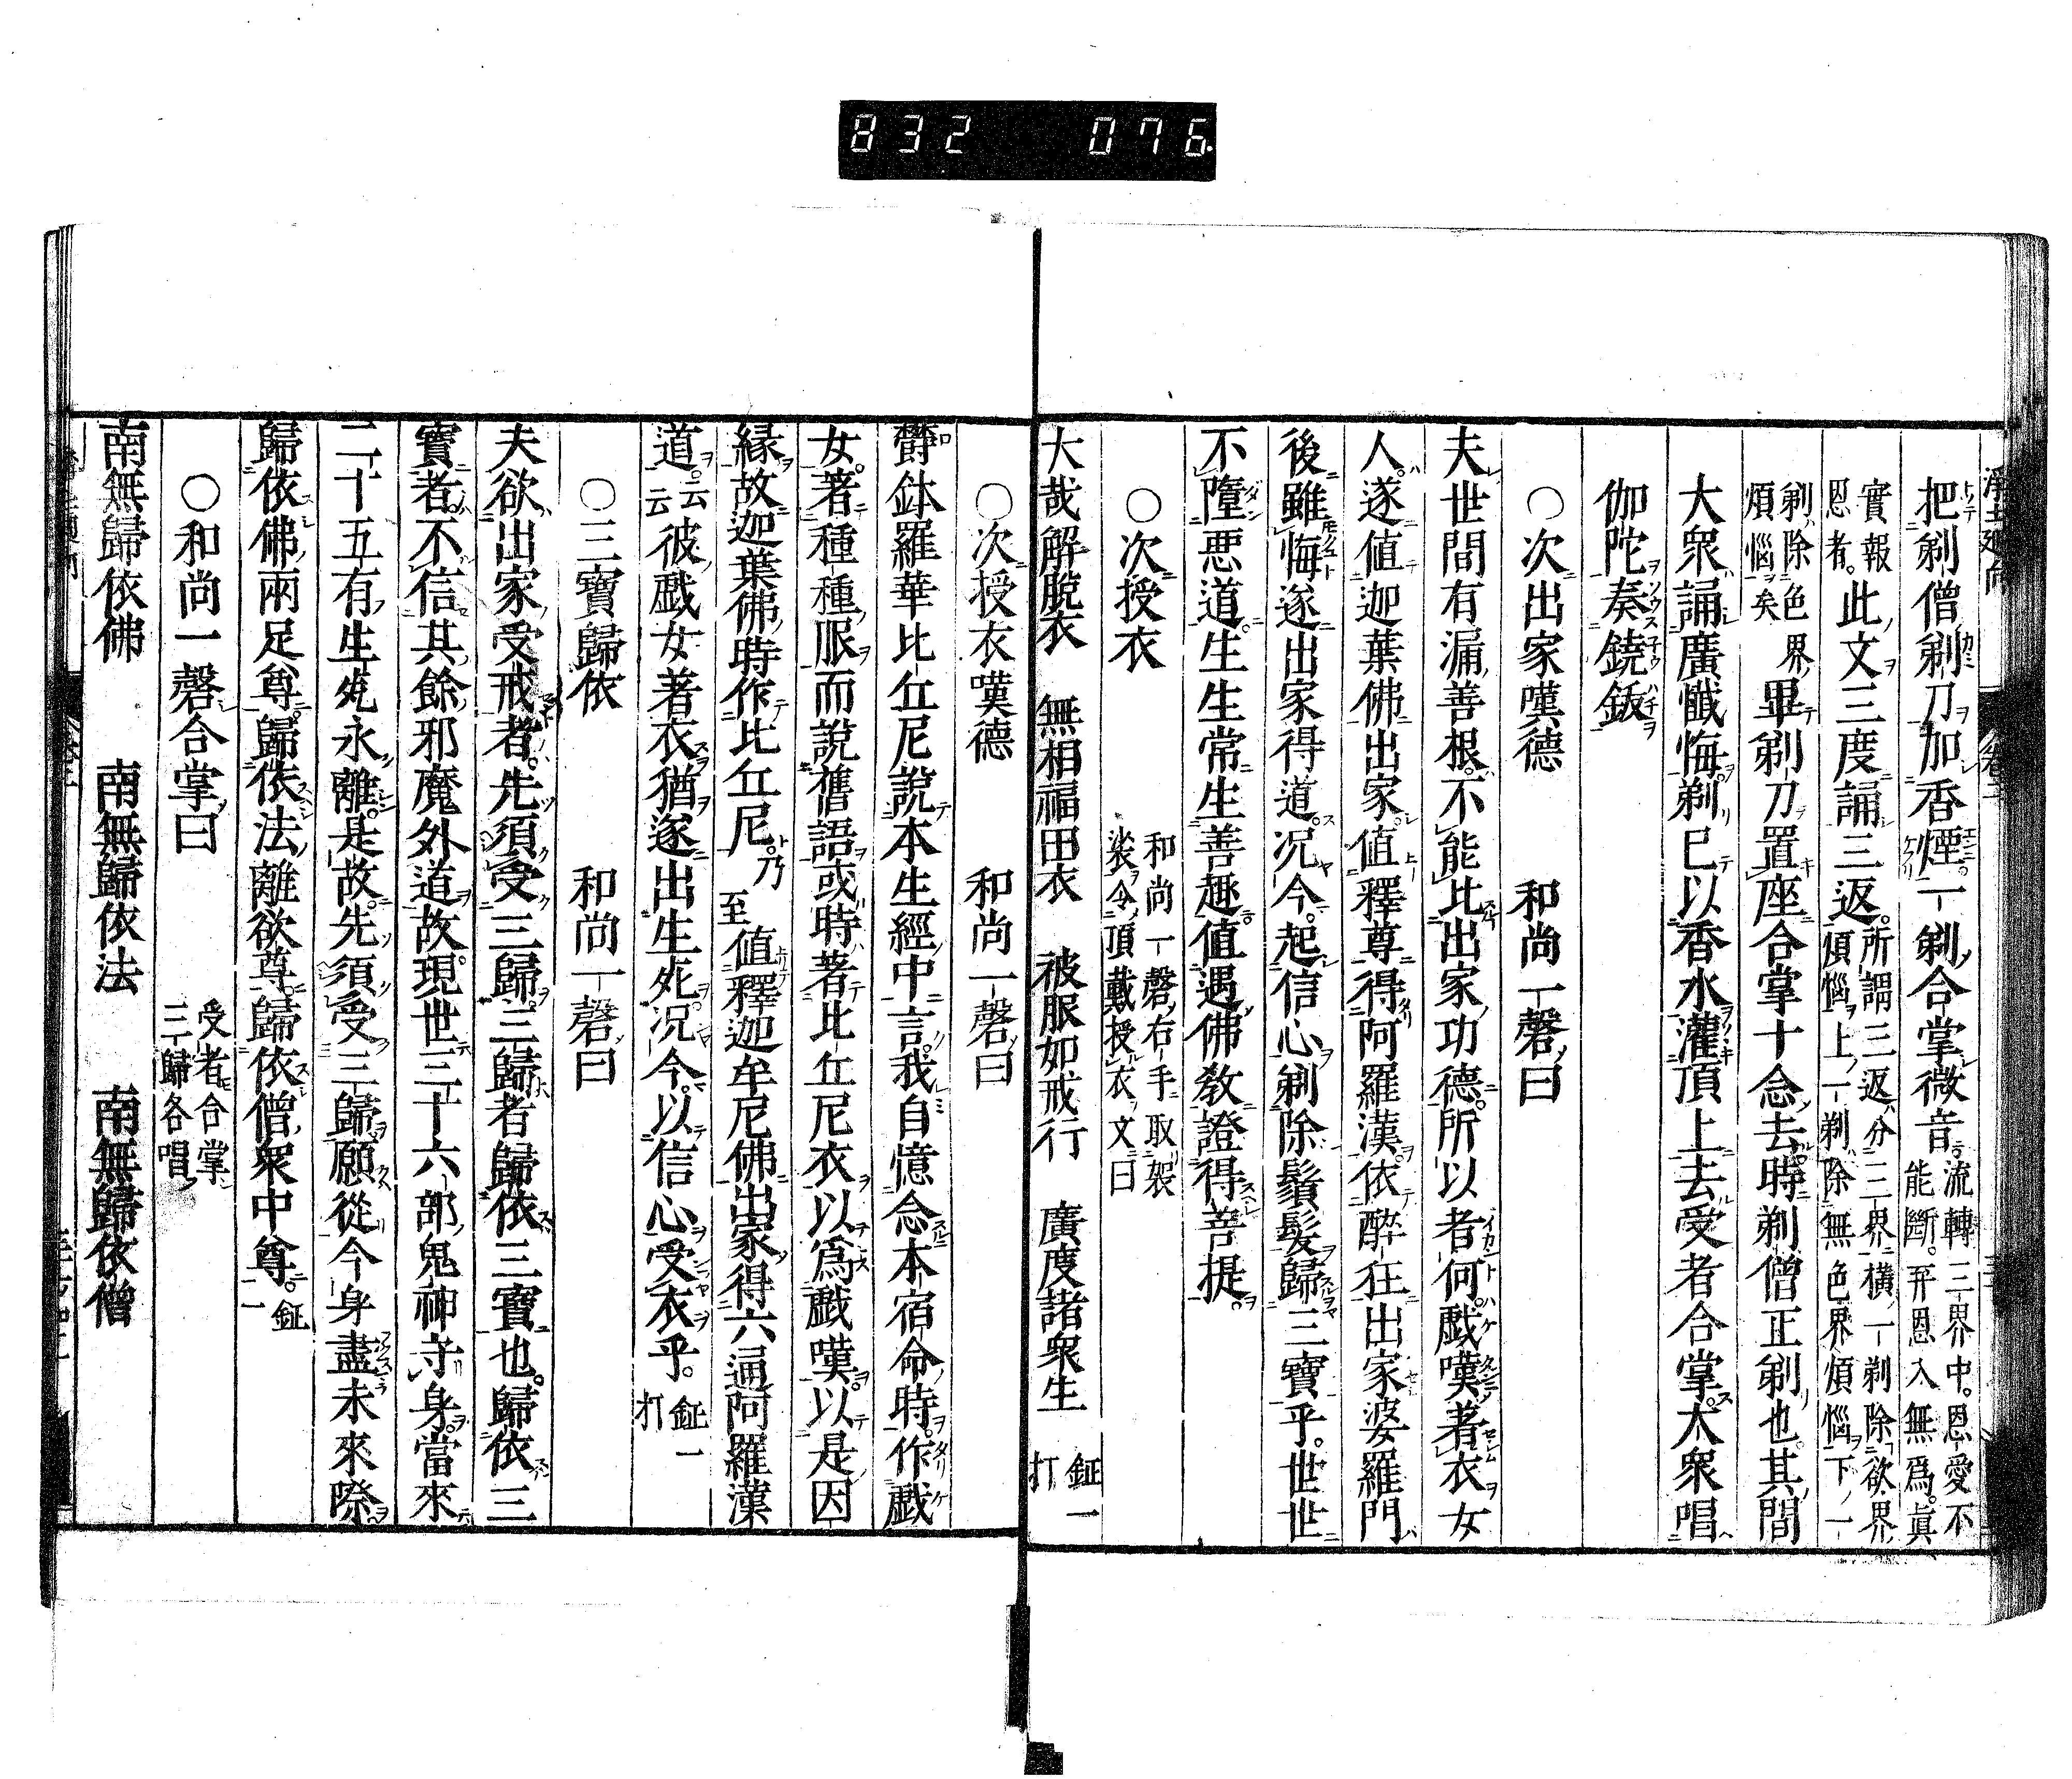 832 076
把剃僧剃刀加香煙一剃合掌微音流轉三界中恩愛不
能斷弃恩入無爲眞
實報
恩者此文三度誦三返所謂三返分三界横一剃除欲界
煩惱上一剃除無色界煩惱下一
剃除色界
煩惱矣畢剃刀置座合掌十念去時剃僧正剃也其間
大衆誦廣懺悔剃已以香水灌頂上去受者合掌大衆唱
伽陀奏鐃鈸
○次出家嘆德 和尚一磬曰
夫世間有漏善根不能比出家功德所以者何戲嘆著衣女
人遂値迦葉佛出家値釋尊得阿羅漢依醉狂出家婆羅門
後雖悔遂出家得道況今起信心剃除鬚髮歸三寶乎世世
不墮悪道生生常生善趣値遇佛敎證得菩提
○次授衣 和尚一磬右手取袈
裟令頂戴授衣文曰
大哉解脫衣 無相福田衣 被服如戒行 廣度諸衆生 鉦一
打
○次授衣嘆德 和尚一磬曰
欝鉢羅華比丘尼說本生經中言我自憶念本宿命時作戲
女著種種服而說舊語或時著比丘尼衣以爲戲嘆以是因
縁故迦葉佛時作比丘尼乃至値釋迦牟尼佛出家得六通阿羅漢
道云云彼戲女著衣猶遂出生死況今以信心受衣乎鉦一
打
○三寶歸依 和尚一磬曰
夫欲出家受戒者先須受三歸三歸者歸依三寶也歸依三
寶者不信其餘邪魔外道故現世三十六部鬼神守身當來
二十五有生死永離是故先須受三歸願從今身盡未來際
歸依佛兩足尊歸依法離欲尊歸依僧衆中尊鉦
一
○和尚一磬合掌曰 受者合掌
三歸各唱
南無歸依佛 南無歸依法 南無歸依僧